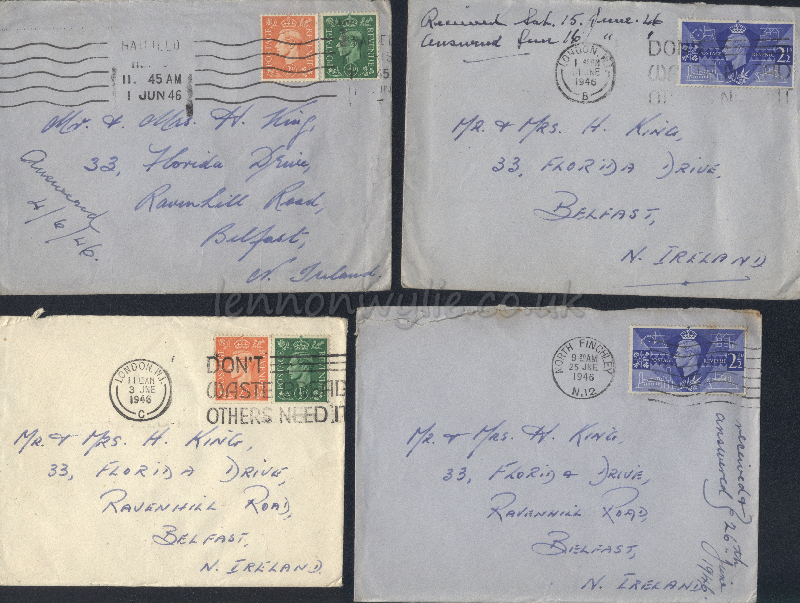 11. 45 AM
1 JUN 46
POSTAGE REVENUE
Mr. & Mrs. H. King,
33, Florida Drive,
Ravenhill Road,
Belfast,
N. Ireland.
Answered
4/6/46.
Received Sat. 15. June. 46
Answered June 16 " "
LONDON.
JNE
1946
B
2½
MR. & MRS. H. KING,
33, FLORIDA DRIVE,
BELFAST,
N. IRELAND
lennonwylie.co.uk
LONDON.
3 JNE
1946
C
DON'T
WASTE
OTHERS NEED IT
MR. & MRS. H. KING,
33, FLORIDA DRIVE,
RAVENHILL ROAD,
BELFAST,
N. IRELAND.
NORTH FINCHLEY
AM
25 JNE
1946
N.12
2½
MR. & MRS. H. KING,
33, FLORIDA DRIVE,
RAVENHILL ROAD,
BELFAST,
N. IRELAND
received &
answered 26th June
1946.